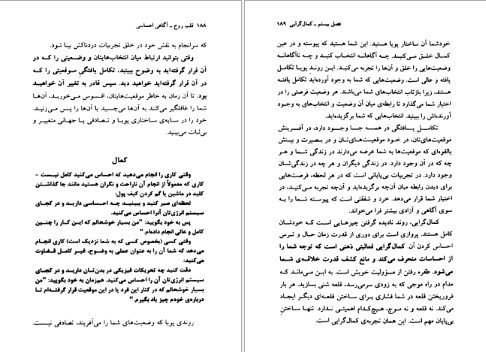 ۱۸۸ قلب روح ـ آگاهی احساسی
که سرانجام به نقش خود در خلق تجربیات دردناکش بینا شود.
وقتی بتوانید ارتباط میان انتخاب‌هایتان و وضعیتی را که در
آن قرار گرفته‌اید به وضوح ببینید. تکامل یافتگی موقعیتی را که
در آن قرار گرفته‌اید خواهید دید. سپس قادر به تغییر آن خواهید
بود. تا آن زمان به خاطر موقعیت‌هایتان، افسوس می‌خورید، آن‌ها
شما را غافلگیر می‌کند به آن‌ها می‌چسبید یا آن‌ها را پس می‌زنید.
خود را در سایه‌ی ساختاری پویا و تصادفی یا جهانی متغیر و
بی‌ثبات می‌بینید
کمال
وقتی کاری را انجام می‌دهید که احساس می‌کنید کامل نیست -
کاری که معمولاً از انجام آن ناراحت و نگران هستید مانند جا گذاشتن
کلید در ماشین یا گم کردن کیف پول.
لحظه‌ای صبر کنید و ببینید چه احساسی دارید و در کجای
سیستم انرژی‌تان آنرا احساس می‌کنید.
پس به خود بگویید: "من بسیار خوشحالم که این کار را چنین
کامل و عالی انجام داده‌ام."
وقتی کسی (بخصوص کسی که به شما نزدیک است) کاری انجام
می‌دهد که شما آن را به عنوان عملی به وضوح، غیر کامل قضاوت
می‌کنید.
دقت کنید چه تحریکات فیزیکی در بدن‌تان دارید و در کجای
سیستم انرژی‌تان آن را احساس می‌کنید. همزمان به خود بگویید: "من
بسیار خوشحالم که در کنار این فرد یا در این موقعیت قرار گرفته‌ام تا
درباره‌ی خودم چیز یاد بگیرم."
روندی پویا که وضعیت‌های شما را می‌آفریند، تصادفی نیست.
فصل بیستم ـ کمال‌گرایی ۱۸۹
خودشما آن ساختار پویا هستید. این شما هستید که پیوسته در عین
کمال خلق می‌کنید. چه آگاهانه انتخاب کنید و چه ناآگاهانه
وضعیت‌هایی را خلق و آن‌ها را تجربه می‌کنید. این روند پویا تکامل
یافته و عالی است. وضعیت‌هایی که شما به وجود آورده‌اید تکاملی
هستند، زیرا بازتاب انتخاب‌های شما می‌باشند. هر وضعیت فرصتی در
اختیار شما می‌گذارد تا رابطه‌ی میان آن وضعیت و انتخاب‌های به وجود
آورنده‌اش را ببینید. انتخاب‌هایی که شما برگزیده‌اید.
تکامل یافتگی در همه جا وجود دارد، در آفرینش
موقعیت‌های‌تان، در خود موقعیت‌های‌تان و در بصیرت و بینش
بالقوه‌ای که موقعیت‌ها به شما عرضه می‌دارند در زندگی‌تان و هر آن
چه که در آن وجود دارد. در زندگی دیگران و هر چه در زندگی‌شان
وجود دارد. در تجربیات بی‌پایانی است که در هر لحظه، فرصت‌هایی
برای دیدن رابطه میان آن‌چه برگزیده‌اید و آن‌چه تجربه می‌کنید، در
اختیار شما قرار می‌دهد. خرد و شفقتی است که پیوسته شما را به
سوی آگاهی و آزادی بیشتر فرا می‌خواند.
کمال‌گرایی، روند نادیده گرفتن چیزهایی است که خودشان
کامل هستند. پروازی است برای دوری از قدرت زمان حال و ترس
احساس کردن آن. کمال‌گرایی فعالیتی ذهنی است که توجه شما را
از احساسات منحرف می‌کند و مانع کشف قدرت خلاقه‌ی شما
می‌شود. طفره رفتن از مسؤولیت خویش است. به این می‌ماند که
مدام در راه موجی که به زودی سرمی‌رسد، قلعه شنی بسازید. هر بار
فروریختن قلعه در شما فشاری برای ساختن قلعه‌ای دیگر ایجاد
می‌کند. نه قلعه و نه موج، هیچ‌کدام اهمیتی ندارد. تنها ساختن
بی‌پایان مهم است. این همان تجربه‌ی کمال‌گرایی است.